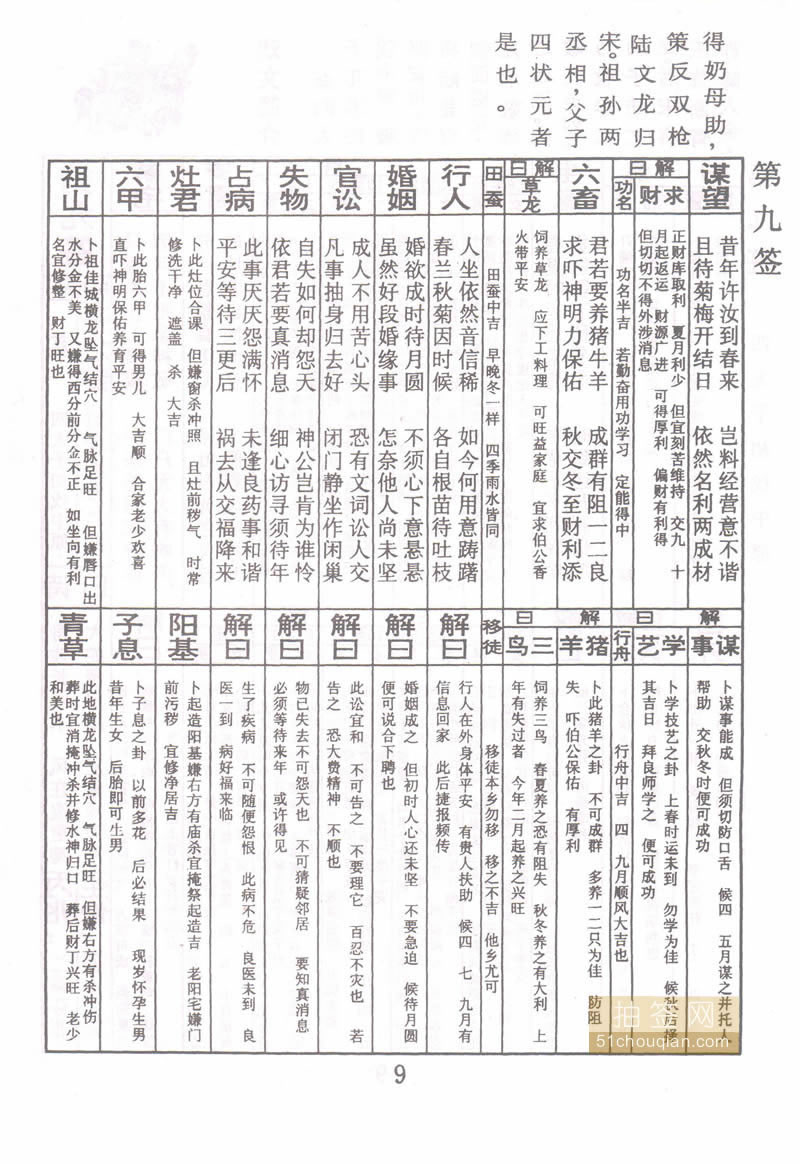 得奶母助，
策反双枪
陆文龙归
宋。祖孙两
丞相，父子
四状元者
是也。
第九签
谋望
昔年许汝到春来 岂料经营意不谐
且待菊梅开结日 依然名利两成材
解曰
求财
正财库取利 夏月利少 但宜刻苦维持 交九 十
月起返运 财源广进 可得厚利 偏财有利得
但切切不得外涉消息
功名
功名半吉 若勤奋用功学习 定能得中
六畜
君若要养猪牛羊 成群有阻一二良
求吓神明力保佑 秋交冬至财利添
解曰
草龙
饲养草龙 应下工料理 可旺益家庭 宜求伯公香
火带平安
田蚕
田蚕中吉 早晚冬一样 四季雨水皆同
行人
人坐依然音信稀 如今何用意踌躇
春兰秋菊因时候 各自根苗待吐枝
婚姻
婚欲成时待月圆 不须心下意悬悬
虽然好段婚缘事 怎奈他人尚未坚
官讼
成人不用苦心头 恐有文词讼人交
凡事抽身归去好 闭门静坐作闲巢
失物
自失如何却怨天 神公岂肯为谁怜
依君若要真消息 细心访寻须待年
占病
此事厌厌怨满怀 未逢良药事和谐
平安等待三更后 祸去从交福降来
灶君
卜此灶位合课 但嫌窗杀冲照 且灶前秽气 时常
修洗干净 遮盖 杀 大吉
六甲
卜此胎六甲 可得男儿 大吉顺 合家老少欢喜
直吓神明保佑养育平安
祖山
卜祖佳城横龙坠气结穴 气脉足旺 但嫌唇口出
水分金不美 又嫌得西分前分金不正 如坐向有利
名宜修整 财丁旺也
解曰
谋事
卜谋事能成 但须切防口舌 候四 五月谋之并托人
帮助 交秋冬时便可成功
学艺
卜学技艺之卦 上春时运未到 勿学为佳 候秋后择
其吉日 拜良师学之 便可成功
行舟
行舟中吉 四 九月顺风大吉也
解曰
猪羊
卜此猪羊之卦 不可成群 多养一二只为佳 防阻
失 吓伯公保佑 有厚利
三鸟
饲养三鸟 春夏养之恐有阻失 秋冬养之有大利 上
年有失过者 今年二月起养之兴旺
移徒
移徒本乡勿移 移之不吉 他乡尤可
解曰
行人在外身体平安 有贵人扶助 候四 七 九月有
信息回家 此后捷报频传
解曰
婚姻成之 但初时人心还未坚 不要急迫 候待月圆
便可说合下聘也
解曰
此讼宜和 不可告之 不要理它 百忍不灾也 若
告之 恐大费精神 不顺也
解曰
物已失去不可怨天也 不可猜疑邻居 要知真消息
必须等待来年 或许得见
解曰
生了疾病 不可随便怨恨 此病不危 良医未到 良
医一到 病好福来临
阳基
卜起造阳基嫌右方有庙杀宜掩祭起造吉 老阳宅嫌门
前污秽 宜修净居吉
子息
卜子息之卦 以前多花 后必结果 现岁怀孕生男
昔年生女 后胎即可生男
青草
此地横龙坠气结穴 气脉足旺 但嫌右方有杀冲伤
葬时宜消掩冲杀并修水神归口 葬后财丁兴旺 老少
和美也
抽签网
51chouqian.com
9